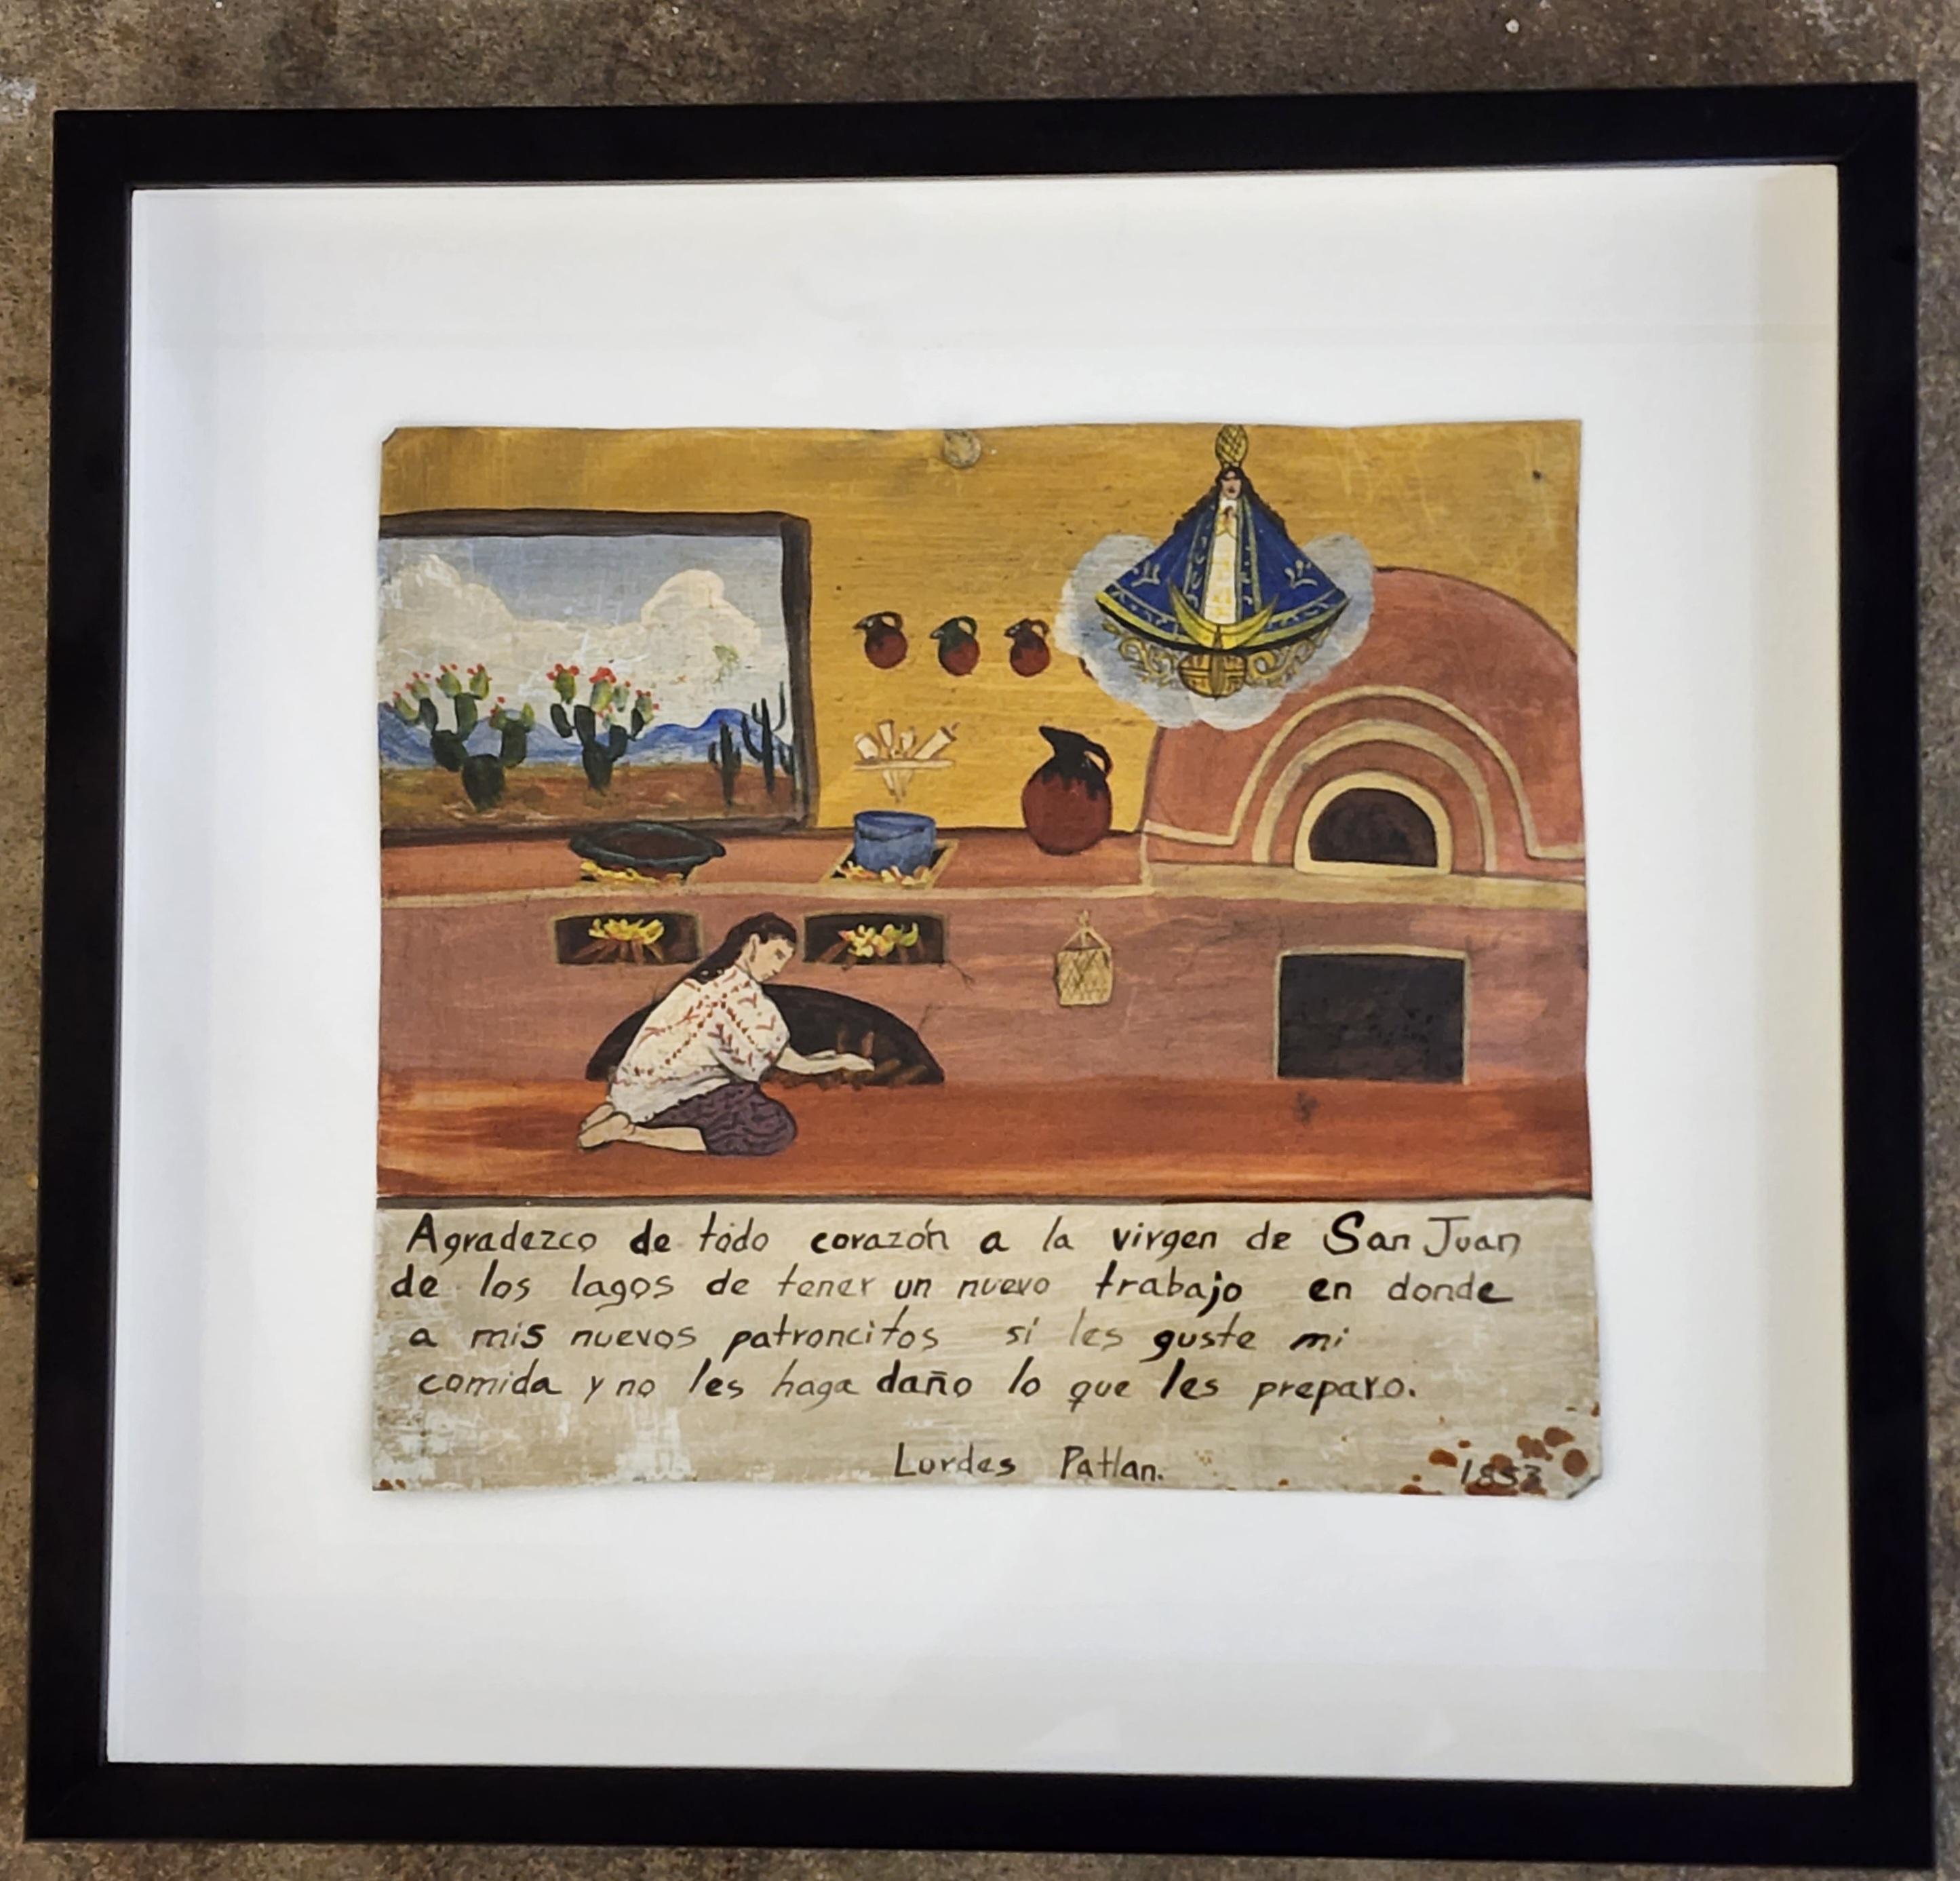 Agradezco de todo corazón a la virgen de San Juan
de los lagos de tener un nuevo trabajo en donde
a mis nuevos patroncitos si les guste mi
comida y no les haga daño lo que les preparo.
Lurdes Patlan.